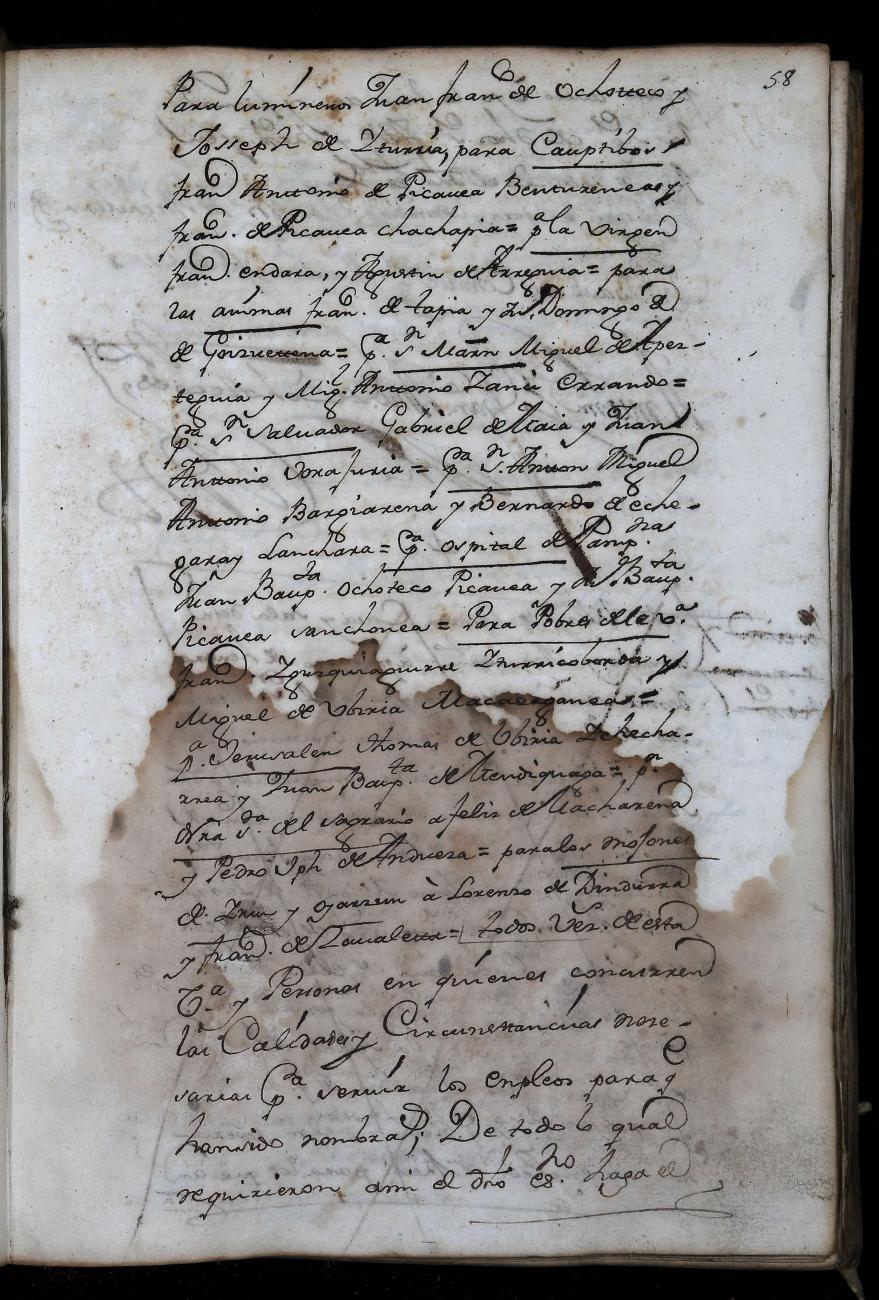 58
Para lumíneros Juan fran.co de Ochoteco y
Josseph de Yturria, para Cauptibos
fran.co Anttonio de Picauea Bentureneas y
fran.co de Picauea chachapia = p.a la Virgen
fran.co endara, y Agustin de Arreguia = para
las animas fran.co de tapia y Ju.s Domingo
de Goizuetena = p.a S.n Martin Miguel de Aper-
teguia y Mig.l Anttonio Errando =
p.a S.n Saluador Gabriel de Maia y Juan
Anttonio Borajuria = p.a S.n Anton Miguel
Anttonio Bargiarena y Bernardo de eche-
garay Lanchara = p.a ospital de Pamp.na
Juan Baup.ta Ochoteco Picauea y Baup.ta
Picauea sanchonea = Para Pobres de la v.a
fran.co Yturricoborda y
Miguel de Vbiria =
p.a Jerusalen thomas de Vbiria Echecha-
rrea y Juan Baup.ta de Mendiguaga = p.a
nra s.ra del sagrario a felix de Macharena
y Pedro Jph de Andueza = para los mesones
de Yrun y oyarzun à Lorenzo de Dindurra
y fran.co de Zaualetta = todos Vez.s de esta
V.a y Personas en quíenes concurren
las Calídades y Circunstancías nese-
sarias p.a seruír los enpleos para q.e
han sido nombrad.s; De todo lo qual
requirieron a mi el dho es.no haga el